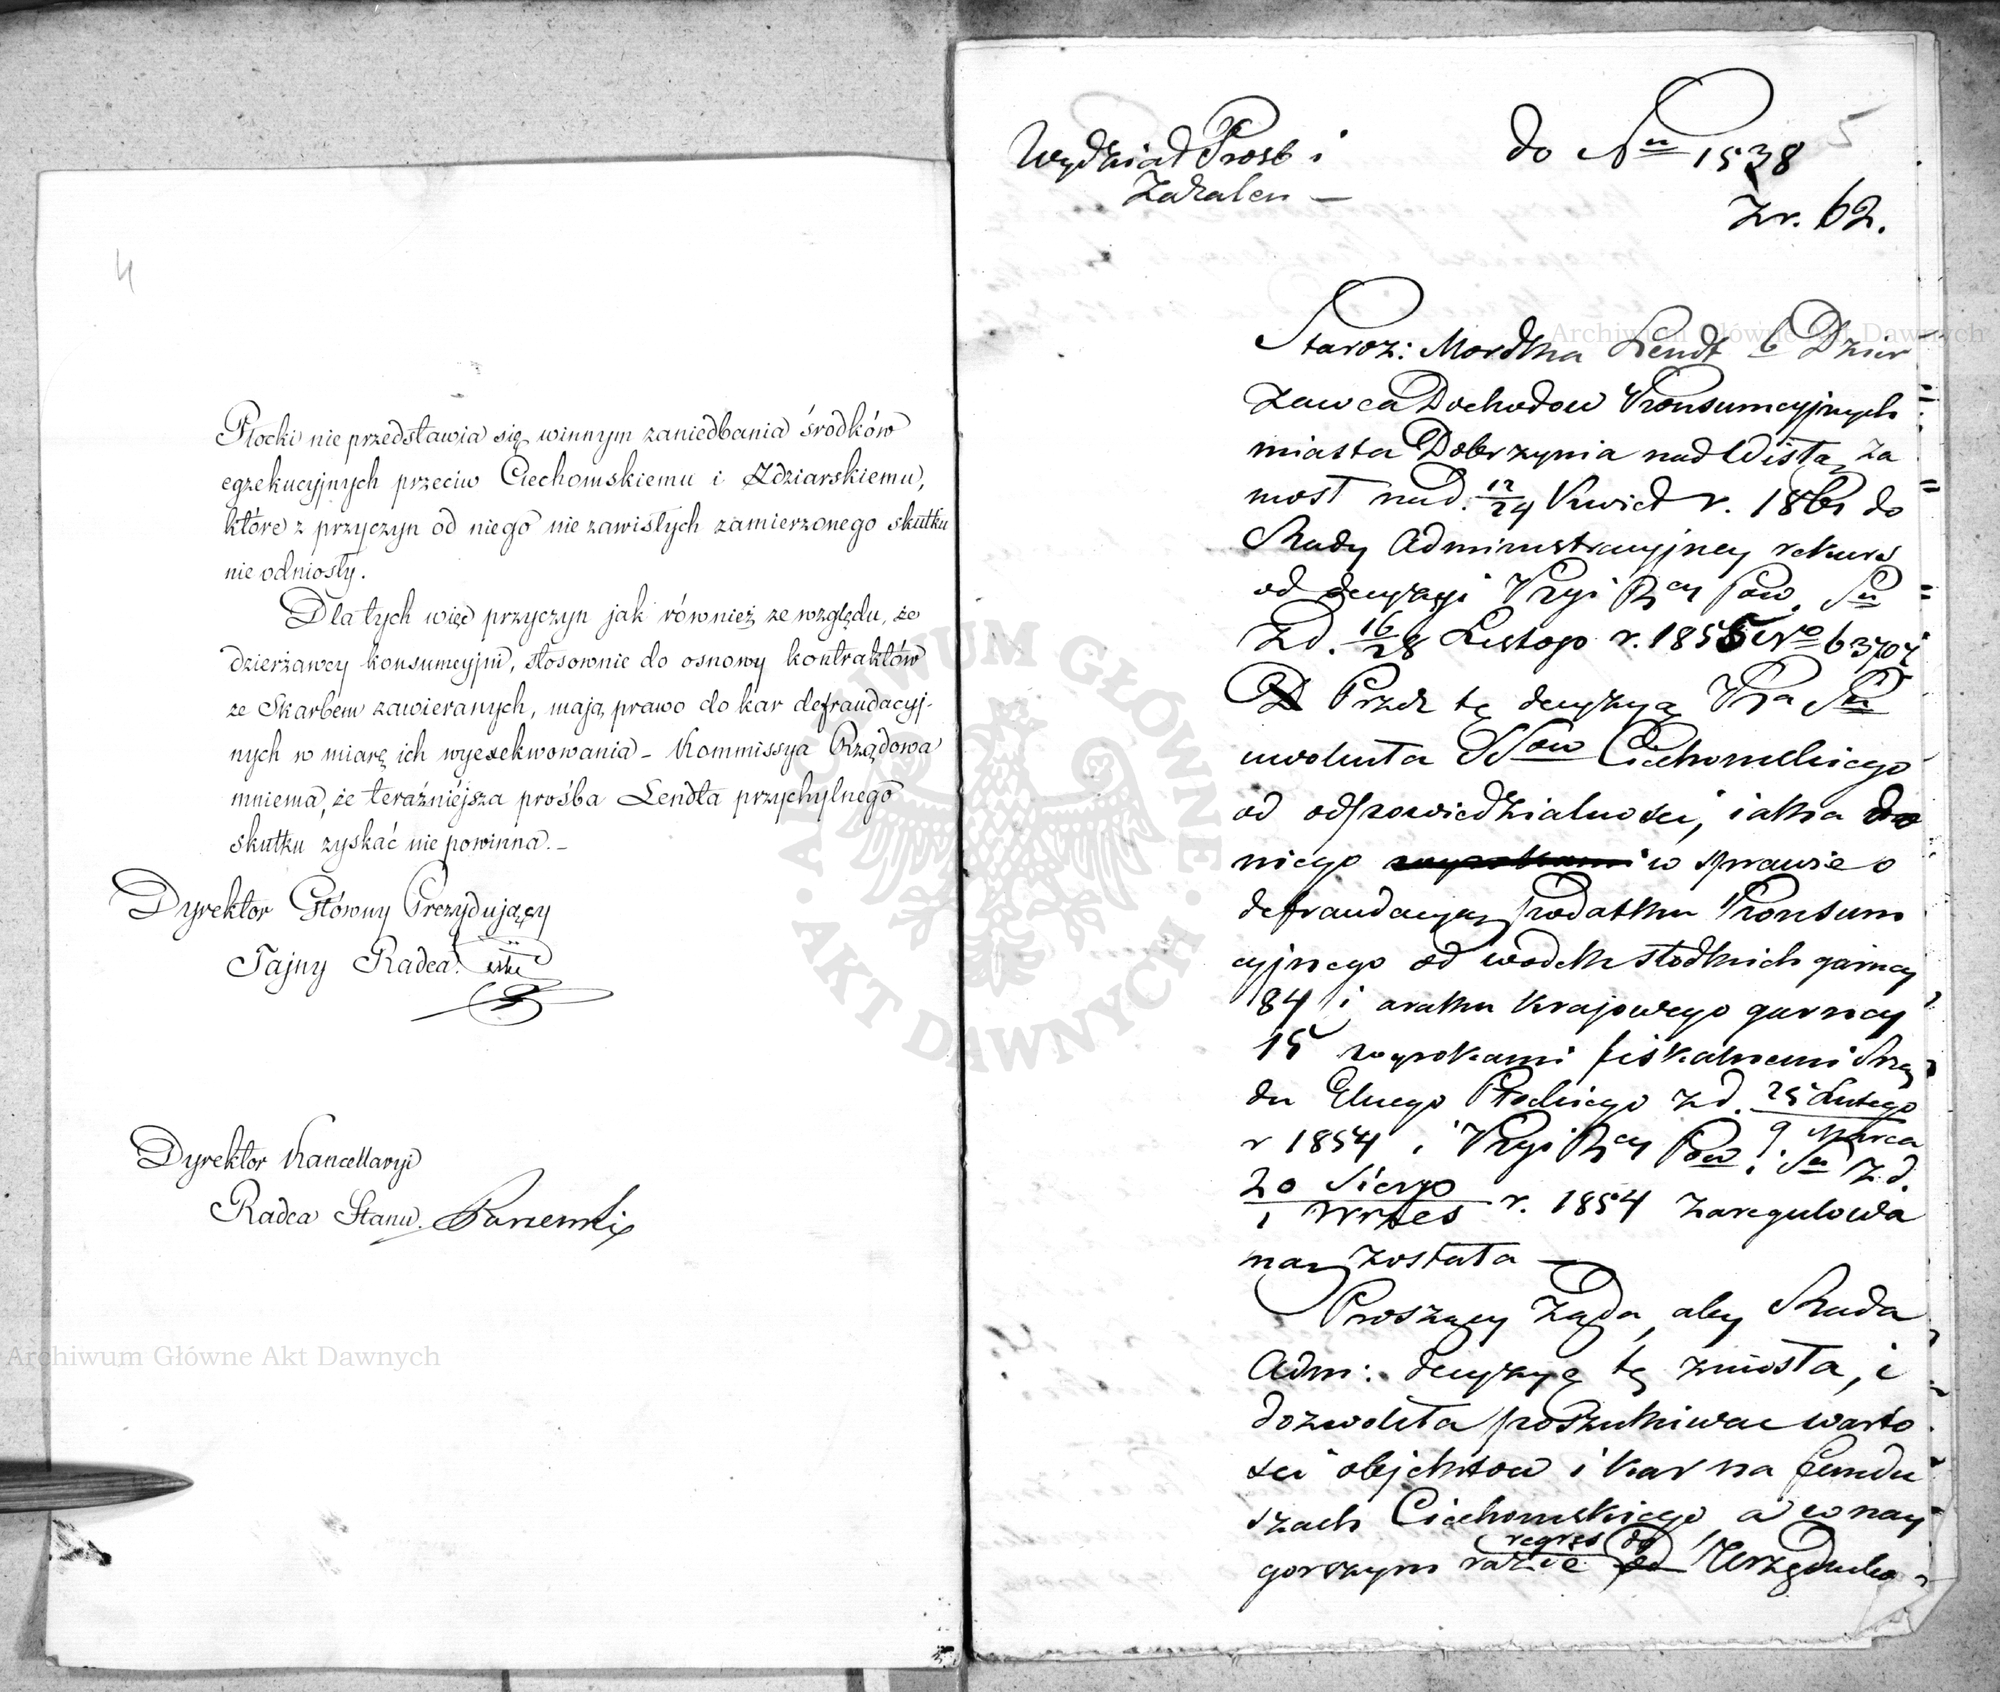 4
Płocki nie przedstawia się winnym zaniedbania środków
egzekucyjnych przeciw Ciechomskiemu i Zdziarskiemu,
które z przyczyn od niego nie zawisłych zamierzonego skutku
nie odniosły.
Dla tych więc przyczyn jak również ze względu, że
dzierżawcy konsumcyjni, stosownie do osnowy kontraktów
ze Skarbem zawieranych, mają prawo do kar defraudacyj-
nych w miarę ich wyexekwowania – Kommissya Rządowa
mniema, że teraźniejsza prośba Lendta przychylnego
skutku zyskać nie powinna. –
Dyrektor Główny Prezydujący
Tajny Radca
Dyrektor Kancellaryi
Radca Stanu.
Archiwum Główne Akt Dawnych
5
Wydział Prosb i
Zażalen –
do Nru 1538
z r. 62.
Archiwum Główne Akt Dawnych
Staroz: Mordka Lendt b Dzier
zawca Dochodow Konsumcyjnych
miasta Dobrzynia nad Wisłą, za
niost nad. 12/24 Kwiet r. 1861 do
Rady Administracyjney rekurs
od decyzyi Kzyi Rcy Skar
z d. 16/28 Listop r. 1855 No 63707
Przez tę decyzyą
uwolniła Ciechomskiego
od odpowiedzialnosci, jaka do
niego w sprawie o
defraudacyą podatku Konsum
cyjnego od wodek słodkich garncy
84 i araku krajowego garncy
15 wyrokami fiskalnemi Rzą
du Gbnego Płockiego z d. 25 Lutego
9 Marca
r 1854 i Kzyi Rcy z d.
20 Sierp
1 Wrzes r. 1854 zaregulowa
ną została –
Proszący żąda, aby Rada
Adm: decyzyą tę zniosła, i
dozwoliła poszukiwac warto
sci objektow i kar na fundu
szach Ciechomskiego, a w nay
regres do
gorszym razie Urzędnika
ARCHIWUM GŁÓWNE · AKT DAWNYCH ·